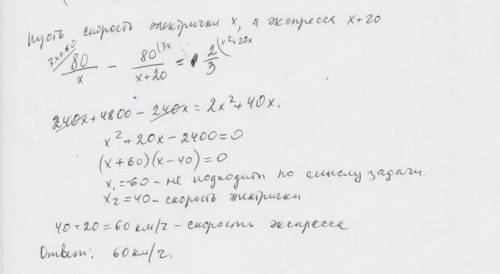 Пусть скорость электрички x, а экспресса x+20
80/x (3x+60) - 80/(x+20) (3x) = 2/3 (x²+20x)
240x+4800-240x=2x²+40x.
x²+20x-2400=0
(x+60)(x-40)=0.
x₁=-60 - не подходит по смыслу задачи.
x₂=40 - скорость электрички
40+20=60 км/ч - скорость экспресса
Ответ: 60 км/ч.